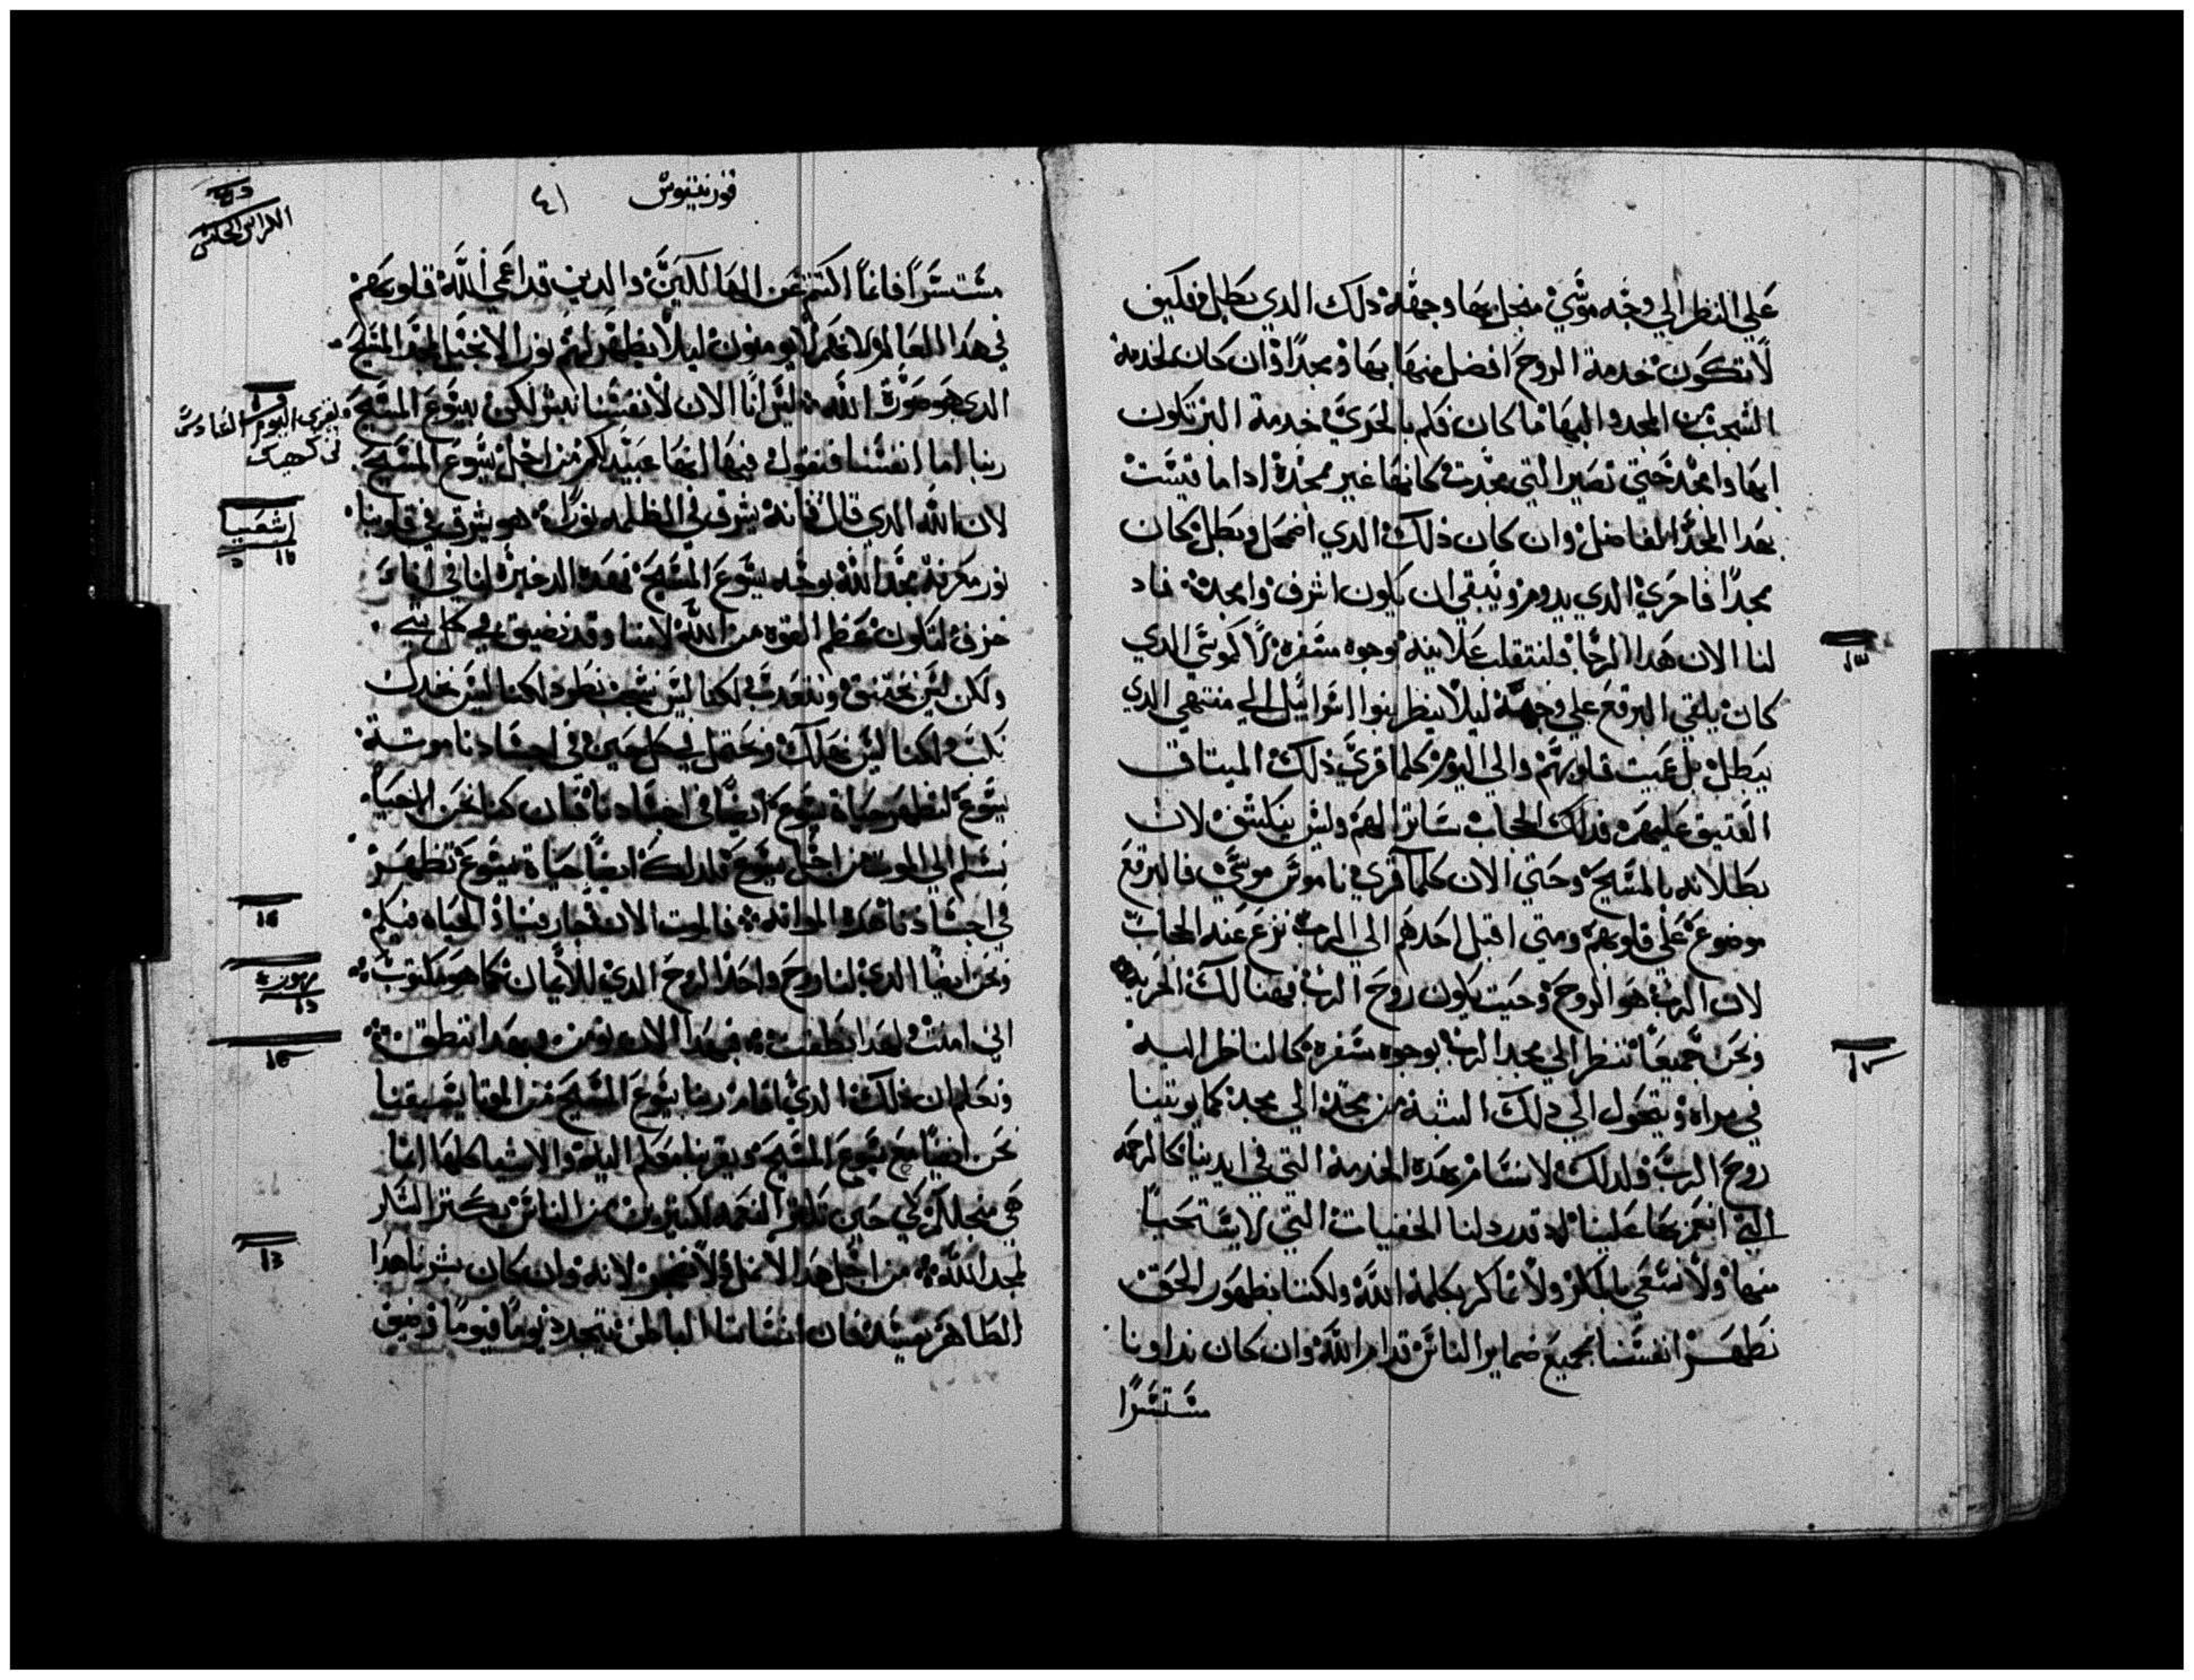 علي النظر الي وجه موسي من اجل بها وجهه ذلك الدي بطل فكيف
لا تكون خدمة الروح افضل منها بها ومجدًا وان كان لخدمة
الشجب من المجد والبها ما كان فكم بالحري خدمة البر تكون
ابها وامجد حتي تصير التي مجدت كانها غير ممجدة ادا ما قيست
بهدا المجد الفاضل وان كان ذلك الدي اضمحل وبطل كان
مجدًا فاحري الدي يدوم ويبقي ان يكون اشرف وامجد فاد
لنا الان هدا الرجا فلنتقلب علانية بوجوه مسفره لا كموسي الدي
كان يلقي البرقع علي وجهه ليلا ينظر بنوا اسرائيل الي منتهي الدي
يبطل بل عميت قلوبهم والي اليوم كلما قري ذلك الميتاق
العتيق عليهم فدلك الحجاب ساترا لهم وليس ينكشف لان
بطلانه بالمسيح وحتي الان كلما قري ناموس موسي فالبرقع
موضوع علي قلوبهم ومتي اقبل احدهم الي الرب نزع عنه الحجاب
لان الرب هو الروح وحيت يكون روح الرب فهنالك الحرية
ونحن جميعًا ننظر الي مجد الرب بوجوه سفرة كالناظر اليه
في مراه ونتحول الي ذلك الشبه من مجد الي مجد كما يوتينا
روح الرب ولدلك لا نسام بهده الخدمة التي في ايدينا كالرحمه
التي انعم بها علينا لاد لنا الخفيات التي لا يستحيا
منها ولا نسعي بالمكر ولا نماكر بكلمة الله ولكننا بظهور الحق
نظهر انفسنا لجميع ضماير الناس قدام الله وان كان نداونا
مستسرًا
قورنتيوس ٤١
الكراس الخامس
مستسرًا فانما اكتتم عن الهالكين والدين قد اعمي الله قلوبهم
في هدا العالم لانهم لا يومنون ليلا يظهر لهم نور الانجيل لمجد المسيح
الدي هو صورة الله لسنا الان لانفسنا نبشر لكن بيسوع المسيح
ربنا اما انفسنا فنقول فيها انها عبيدكم من اجل يسوع المسيح
لان الله الدي قال فانه يشرق في الظلمه نورًا هو يشرق في قلوبنا
نور معرفة مجد الله بوجه يسوع المسيح فهده الدخيرة لنا في انا
خزف لتكون عظم القوه من الله لا منا وقد نضيق في كل شي
ولكن ليس نختنق ونتعدب لكنا ليس نشجب نطرد لكنا ليس نخدل
ولكنا ليس نهلك ونحتمل في كل حين في اجسادنا موت
يسوع لتظهر حياة يسوع ايضًا في اجسادنا فان كنا نحن الاحيا
نسلم الي الموت من اجل يسوع فلدلك ايضًا حياة يسوع تظهر
في اجسادنا هده المايته فالموت الان فينا والحياه فيكم
ونحن ايضًا الدي لنا روح واحد الروح الدي للايمان كما هو مكتوب
اني امنت ولهدا نطقت فبهدا الان نومن وبهدا ننطق
ونعلم ان ذلك الدي اقام ربنا يسوع المسيح من الموتا سيقيمنا
نحن ايضًا مع يسوع المسيح ويقربنا معكم اليه والاشيا كلها انما
هي من اجلكم لكي حين تكتر النعمه لكتيرين من الناس يكتر الشكر
لمجد الله من اجل هدا لا نمل ولا نضجر لانه وان كان بشرنا هدا
الظاهر يفسد فان انساننا الباطن يتجدد يومًا فيومًا وضيق
يقري اليوم السادس
من كهيك
اشعيا
مزمور